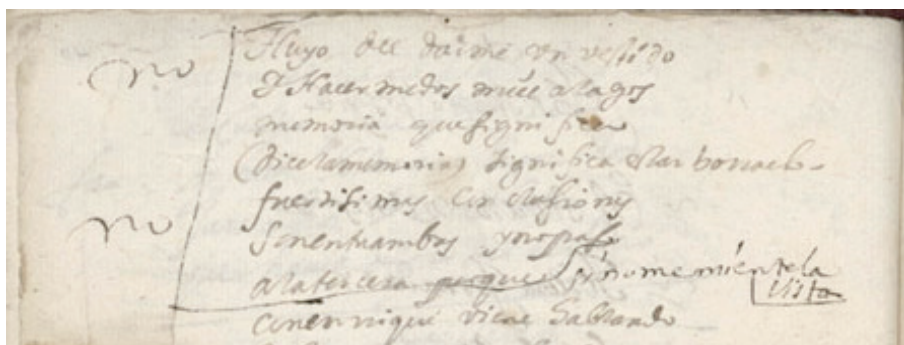 no
fluyo del darme un vestido
y Hacermedos mill alagos
memoria que significa
(dicelamemoria) significa
fuertisimas
sonentrambas
no
alatercera porque si nomemientela
vista
conenrrique viene hablando